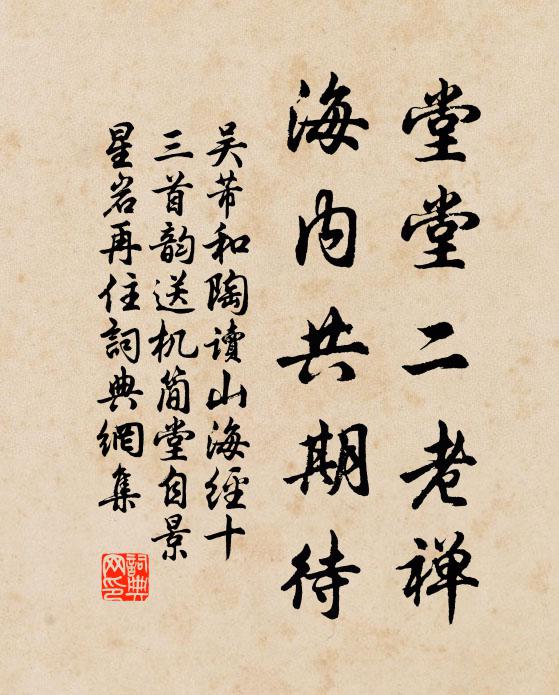 堂堂二老禅
海内共期待
吴芾和陶读山海經十
三首韵送机简堂自景
星岩再住詞典網集
詞典网印